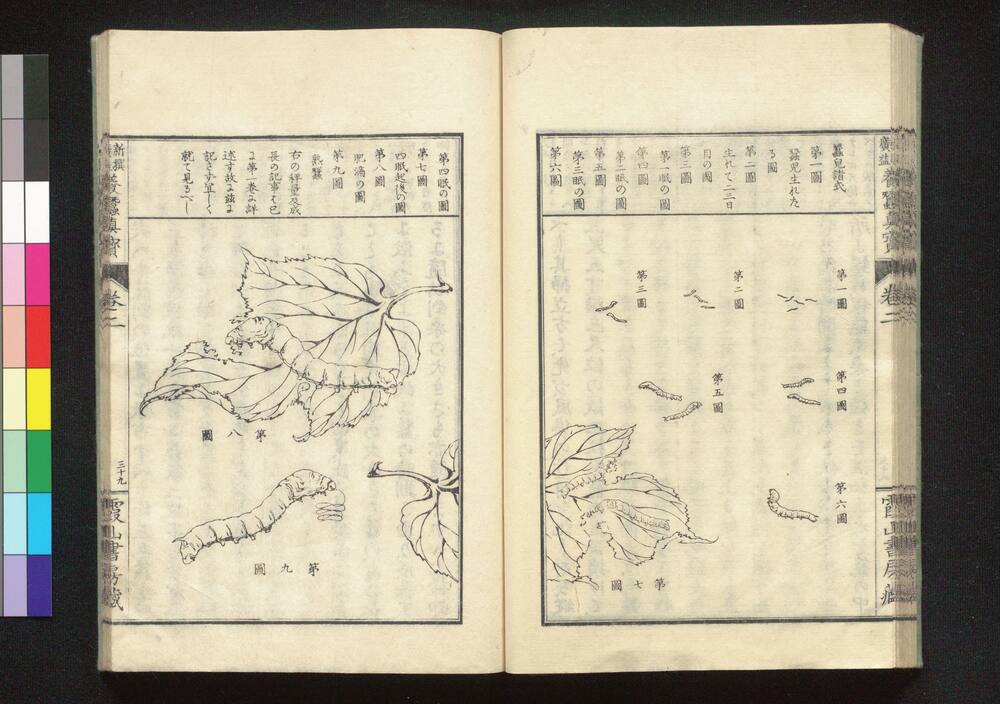 蠶兒諸式
第一圖
蚕児生れた
る圖
第二圖
生れて二三日
目の圖
第三圖
第一眠の圖
第四圖
第二眠の圖
第五圖
第三眠の圖
第六圖
第一圖
第二圖
第三圖
第四圖
第五圖
第六圖
第七圖
卷二
第四眠の圖
第七圖
四眠起後の圖
第八圖
肥満の圖
第九圖
熟蠶
右の秤量及成
長の記事ハ已
に第一巻に詳
述す故に茲に
記さず宜しく
就て見るべし
第八圖
第九圖
新撰養蠶眞寶
卷二
三十九
霞山書房藏